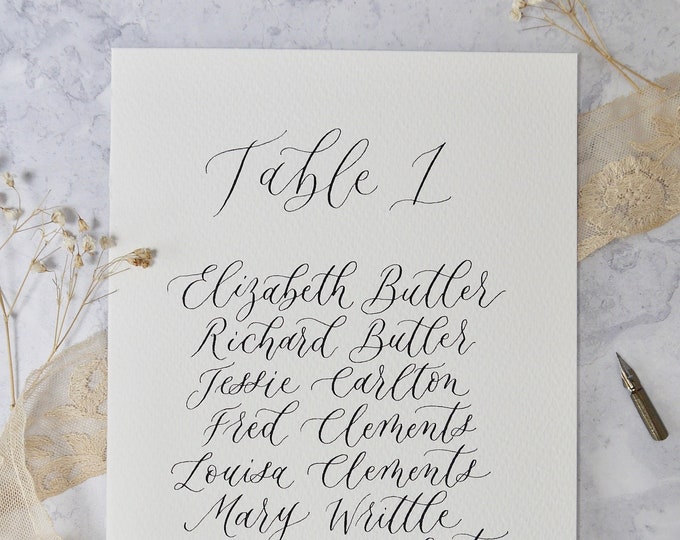 Table 1
Elizabeth Butler
Richard Butler
Jessie Carlton
Fred Clements
Louisa Clements
Mary Writtle